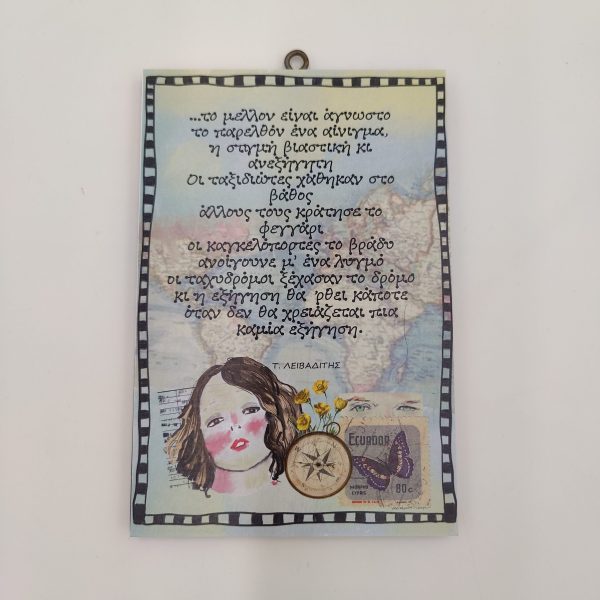 ...το μελλον είναι άγνωστο
το παρελθόν ένα αίνιγμα,
η στιγμή βιαστική κι
ανεξήγητη
Οι ταξιδιώτες χάθηκαν στο
βάθος
άλλους τους κράτησε το
φεγγάρι
οι καγκελόπορτες το βράδυ
ανοίγουνε μ' ένα λυγμό
οι ταχυδρόμοι ξέχασαν το δρόμο
κι η εξήγηση θα ρθει κάποτε
όταν δεν θα χρειάζεται πια
καμία εξήγηση.
Τ. ΛΕΙΒΑΔΙΤΗΣ
ECUADOR
MORPHO
CYPRIS
80c